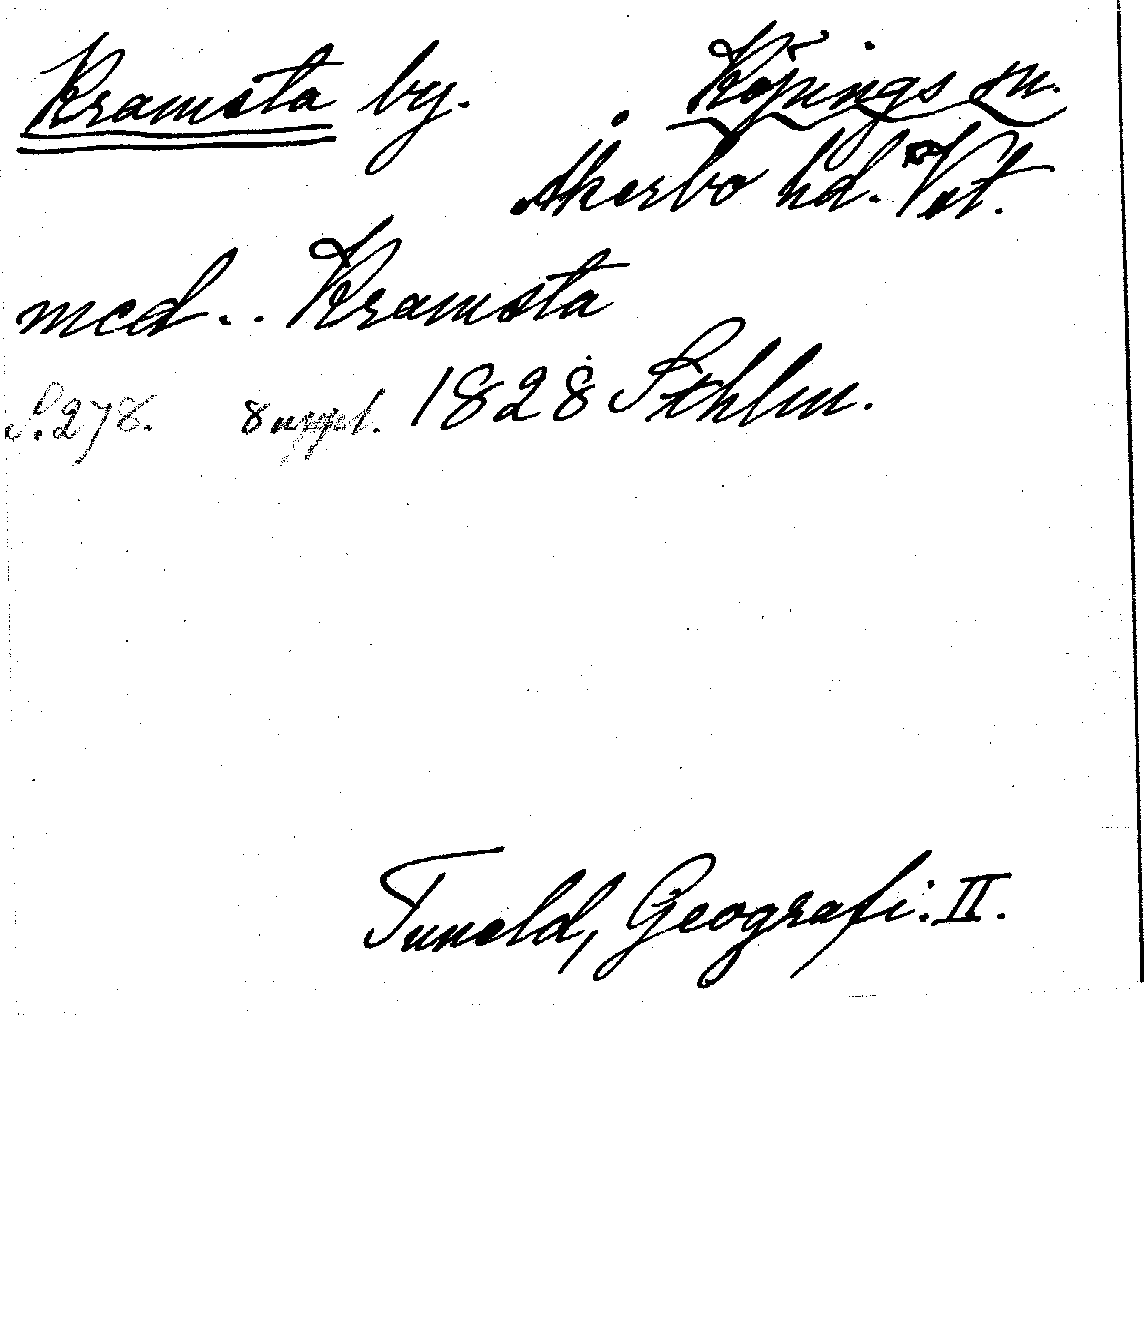 Kramsta by. Köpings sn.
Åkerbo hd. Vstm.
med.. Kramsta
S. 278. Suppl. 1828 Sthlm.
Tuneld, Geografi. II.